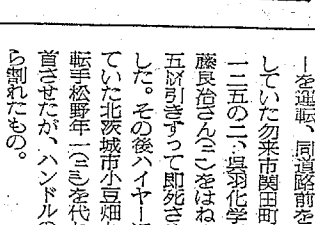 ーを運転、同道路前を
していた勿来市関田町
一二五の二、呉羽化学
藤良治さん(二)をはね
五㍍引きずって即死さ
した。その後ハイヤー
ていた北茨城市小豆畑
転手松野年一(三)を代
首させたが、ハンドルの
ら割れたもの。